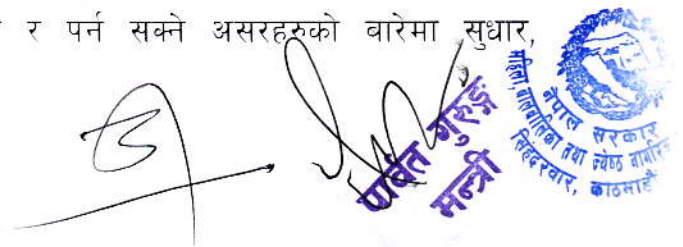 र पर्न सक्ने असरहरुको बारेमा सुधार,
पार्वत गुरुङ्ग
मन्त्री
नेपाल सरकार
महिला, बालबालिका तथा ज्येष्ठ नागरिक
सिंहदरवार, काठमाडौं